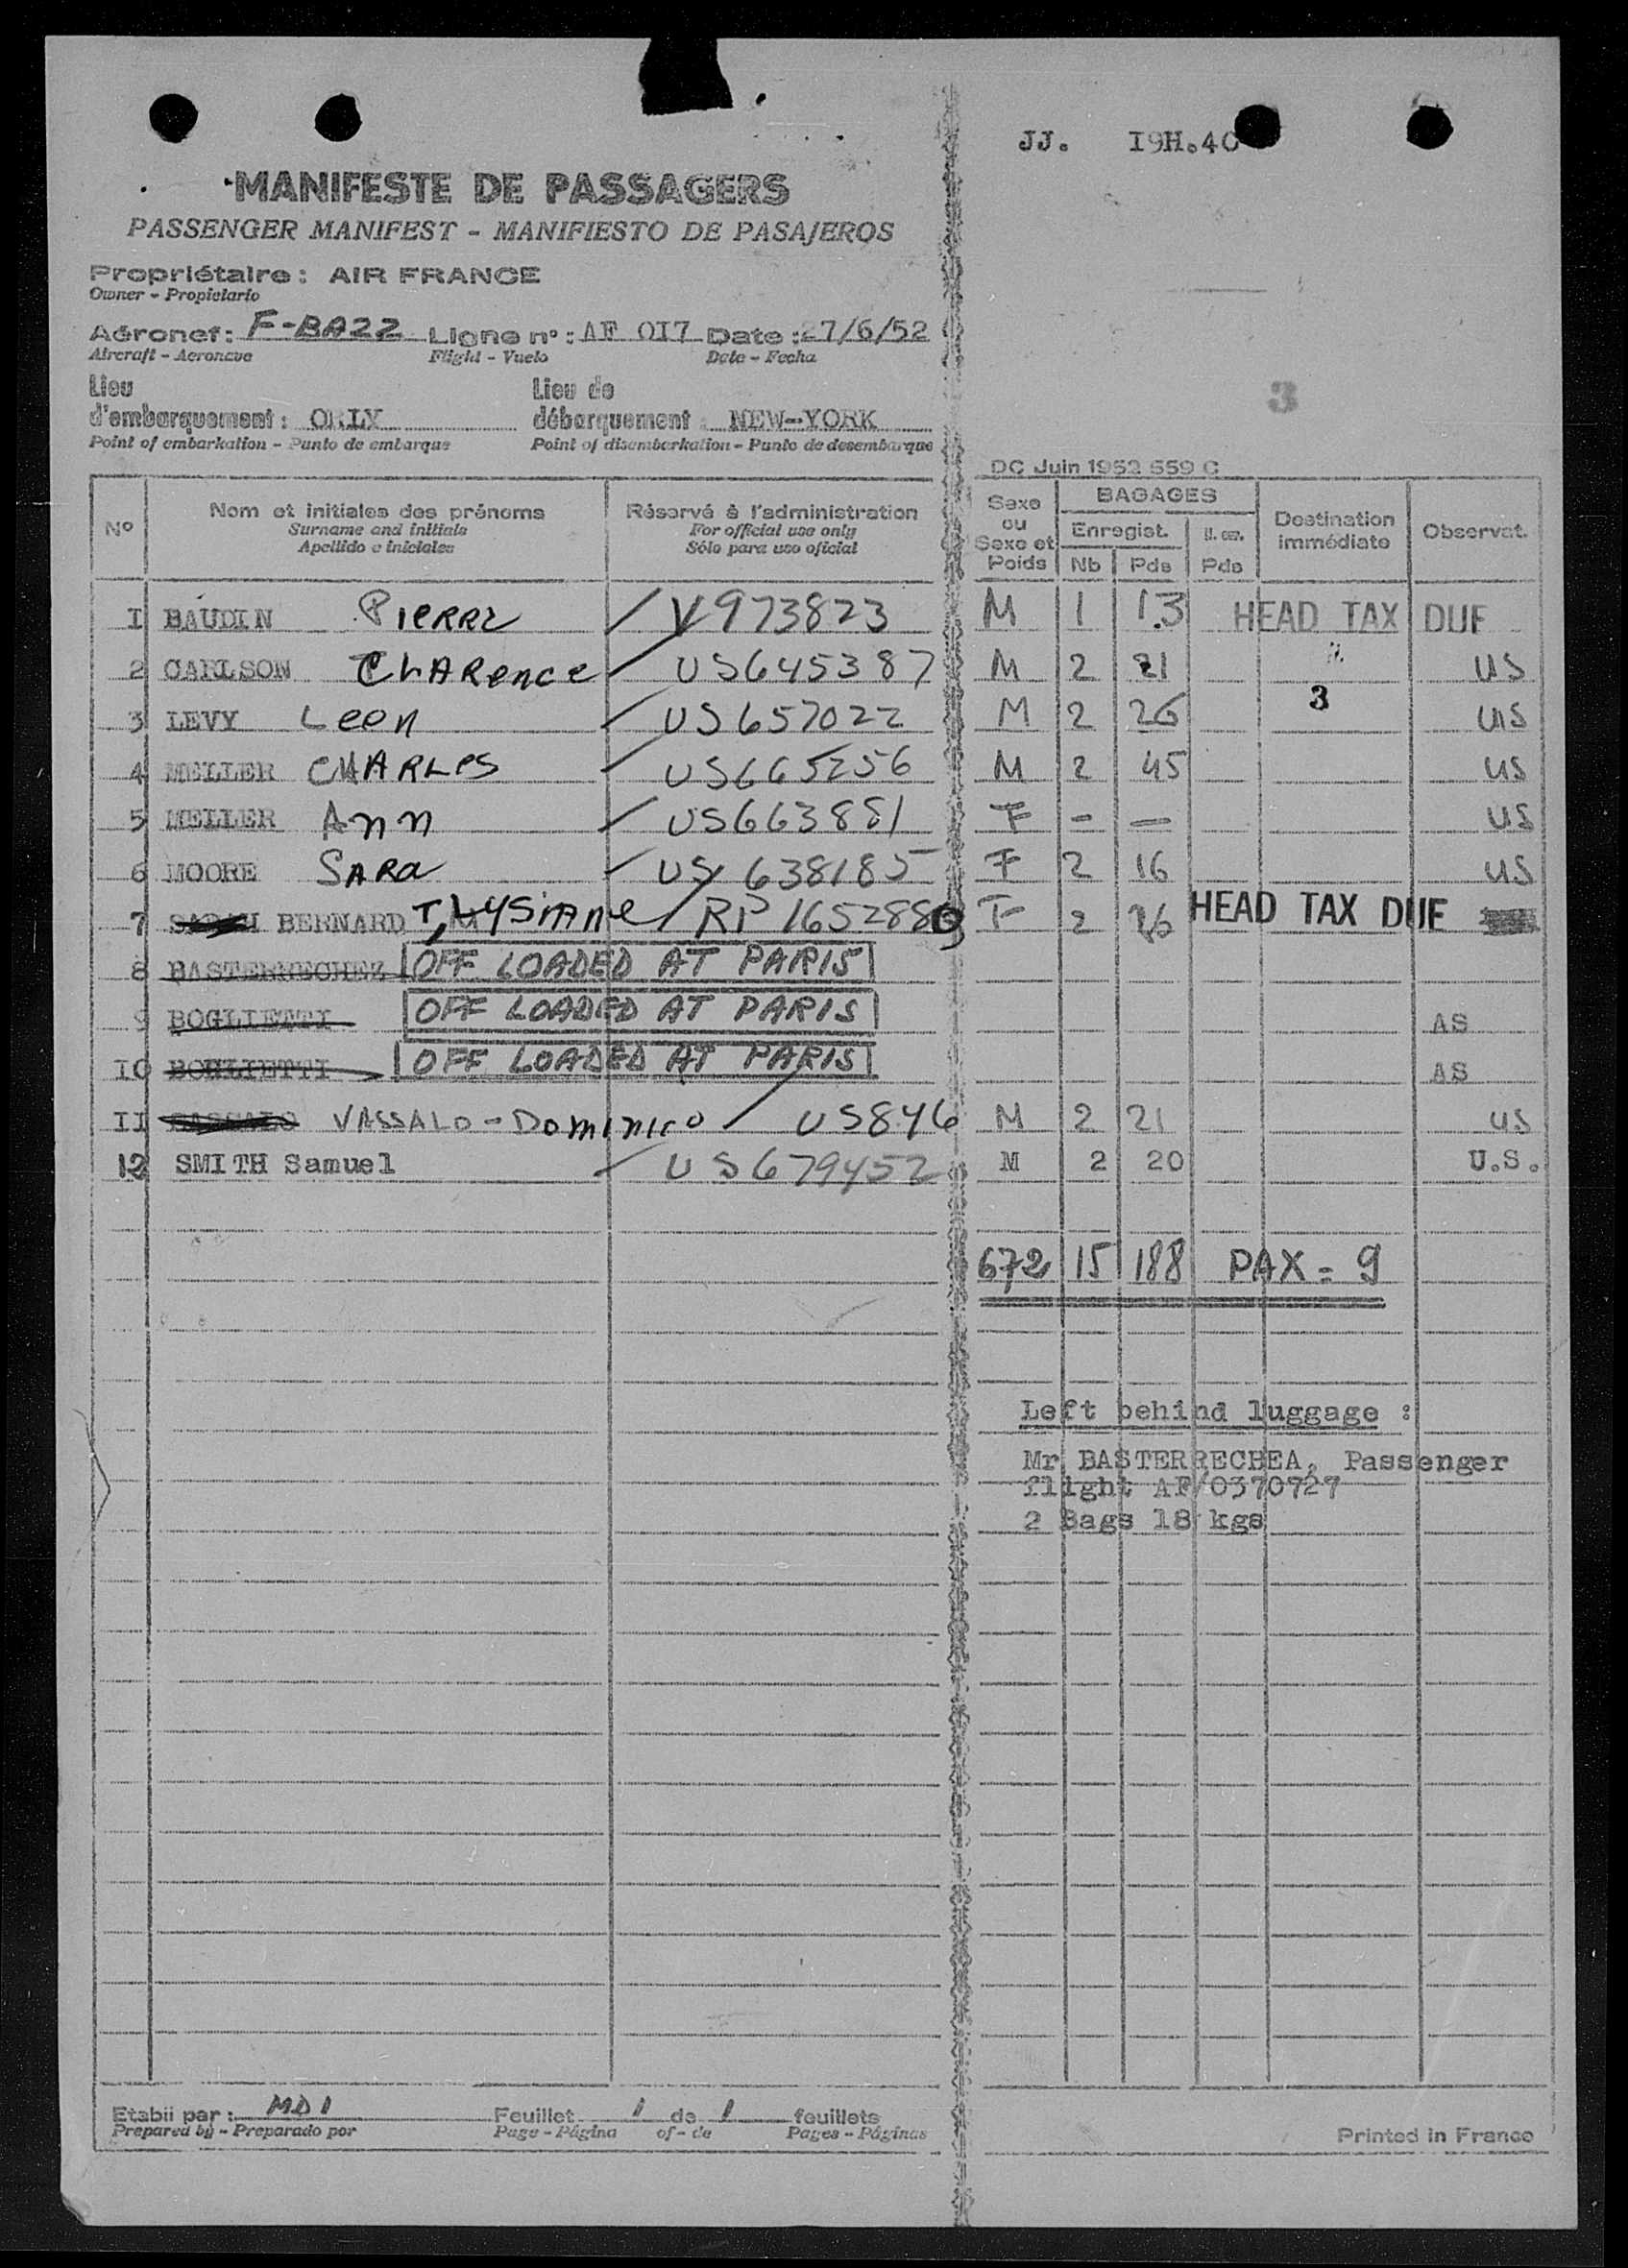 JJ. I9H.40
MANIFESTE DE PASSAGERS
PASSENGER MANIFEST - MANIFIESTO DE PASAJEROS
Propriétaire : AIR FRANCE
Owner - Propietario
Aéronef : F-BAZZ Ligne n° : AF OI7 Date : 27/6/52
Aircraft - Aeronave Flight - Vuelo Date - Fecha
Lieu Lieu de
d'embarquement : ORLY débarquement : NEW-YORK
Point of embarkation - Punto de embarque Point of disembarkation - Punto de desembarque
3
DC Juin 1952 559 C
N° Nom et initiales des prénoms Réservé à l'administration Sexe ou Sexe et Poids BAGAGES Destination immédiate Observat.
Surname and initials For official use only Enregist.
Apellido e iniciales Sólo para uso oficial Nb Pds Pds
I BAUDIN Pierre V973823 M 1 13 HEAD TAX DUE
2 CARLSON CLARence US645387 M 2 21 US
3 LEVY Leon US657022 M 2 26 3 US
4 MELLER CHARLes US665256 M 2 45 US
5 MELLER Ann US663881 F - - US
6 MOORE SARa US 638185 F 2 16 US
7 BERNARD T, LYSiANe RP 1652880 F 2 26 HEAD TAX DUE
8 BASTERRECHEZ OFF LOADED AT PARIS
9 BOGLIETTI OFF LOADED AT PARIS AS
IO BOGLIETTI OFF LOADED AT PARIS AS
II VASSALO - Dominico US846 M 2 21 US
12 SMITH Samuel US679452 M 2 20 U.S.
672 15 188 PAX = 9
Left behind luggage :
Mr BASTERRECHEA, Passenger
flight AF/0370727
2 Bags 18 kgs
Etabli par : MD1 Feuillet 1 de 1 feuillets
Prepared by - Preparado por Page - Página of - de Pages - Páginas
Printed in France